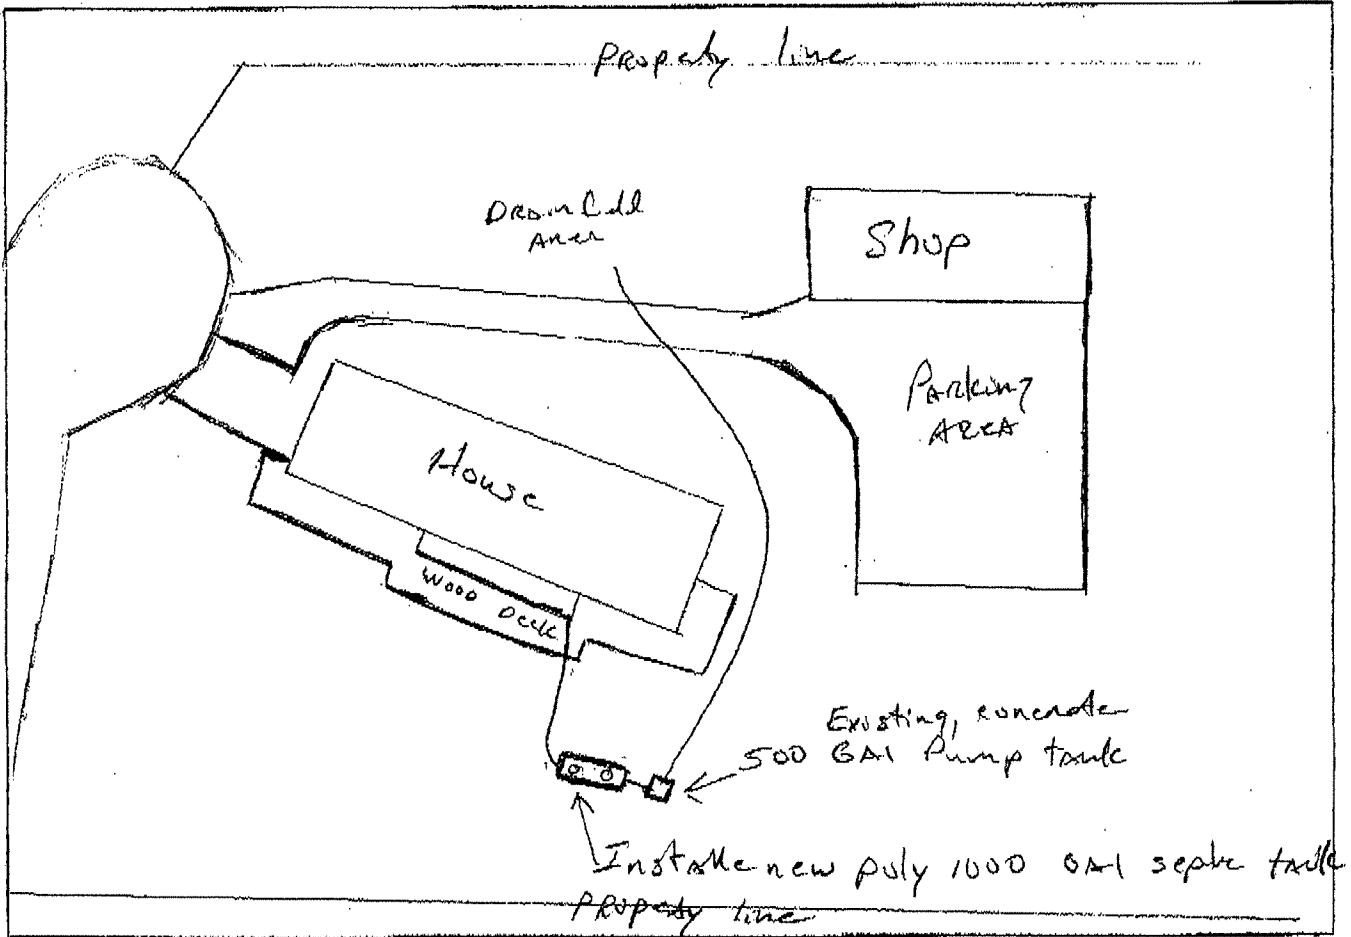 Property line
Drainfield
Area
Shop
Parking
AREA
House
Wood Deck
Existing, concrete
500 GAl Pump tank
Install new poly 1000 GAl septic tank
Property line